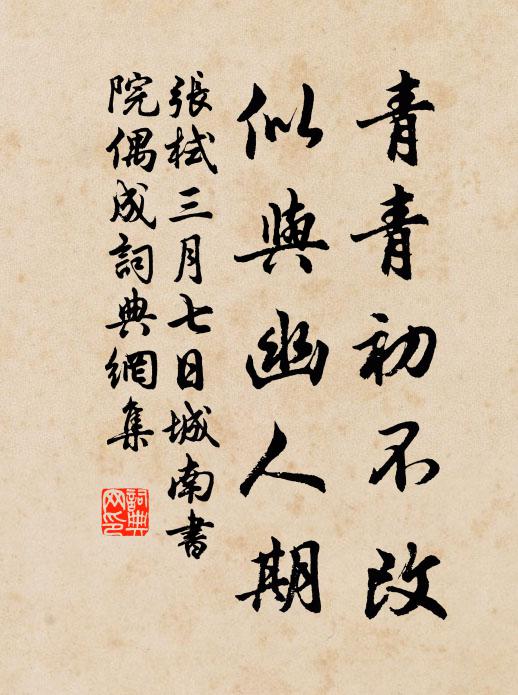 青青初不改
似與幽人期
張栻三月七日城南書
院偶成詞典網集
詞典
网印